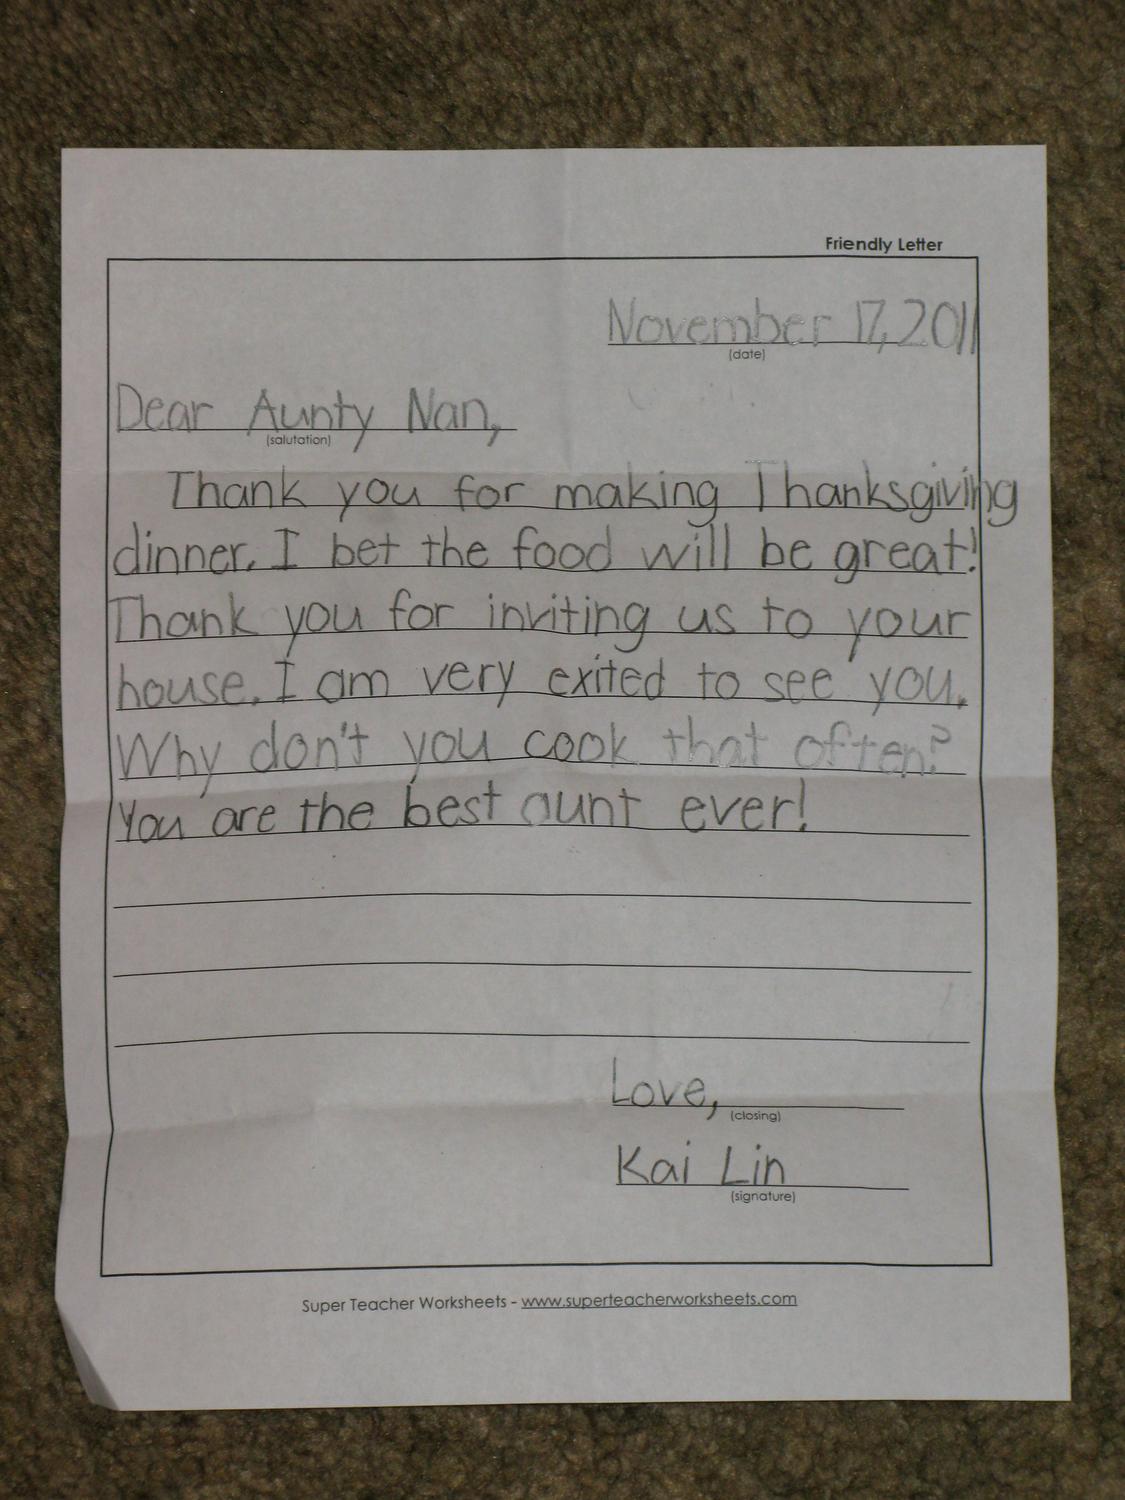 Friendly Letter
November 17, 2011
(date)
Dear Aunty Nan,
(salutation)
Thank you for making Thanksgiving
dinner. I bet the food will be great!
Thank you for inviting us to your
house. I am very exited to see you.
Why don't you cook that often?
You are the best aunt ever!
Love,
(closing)
Kai Lin
(signature)
Super Teacher Worksheets - www.superteacherworksheets.com